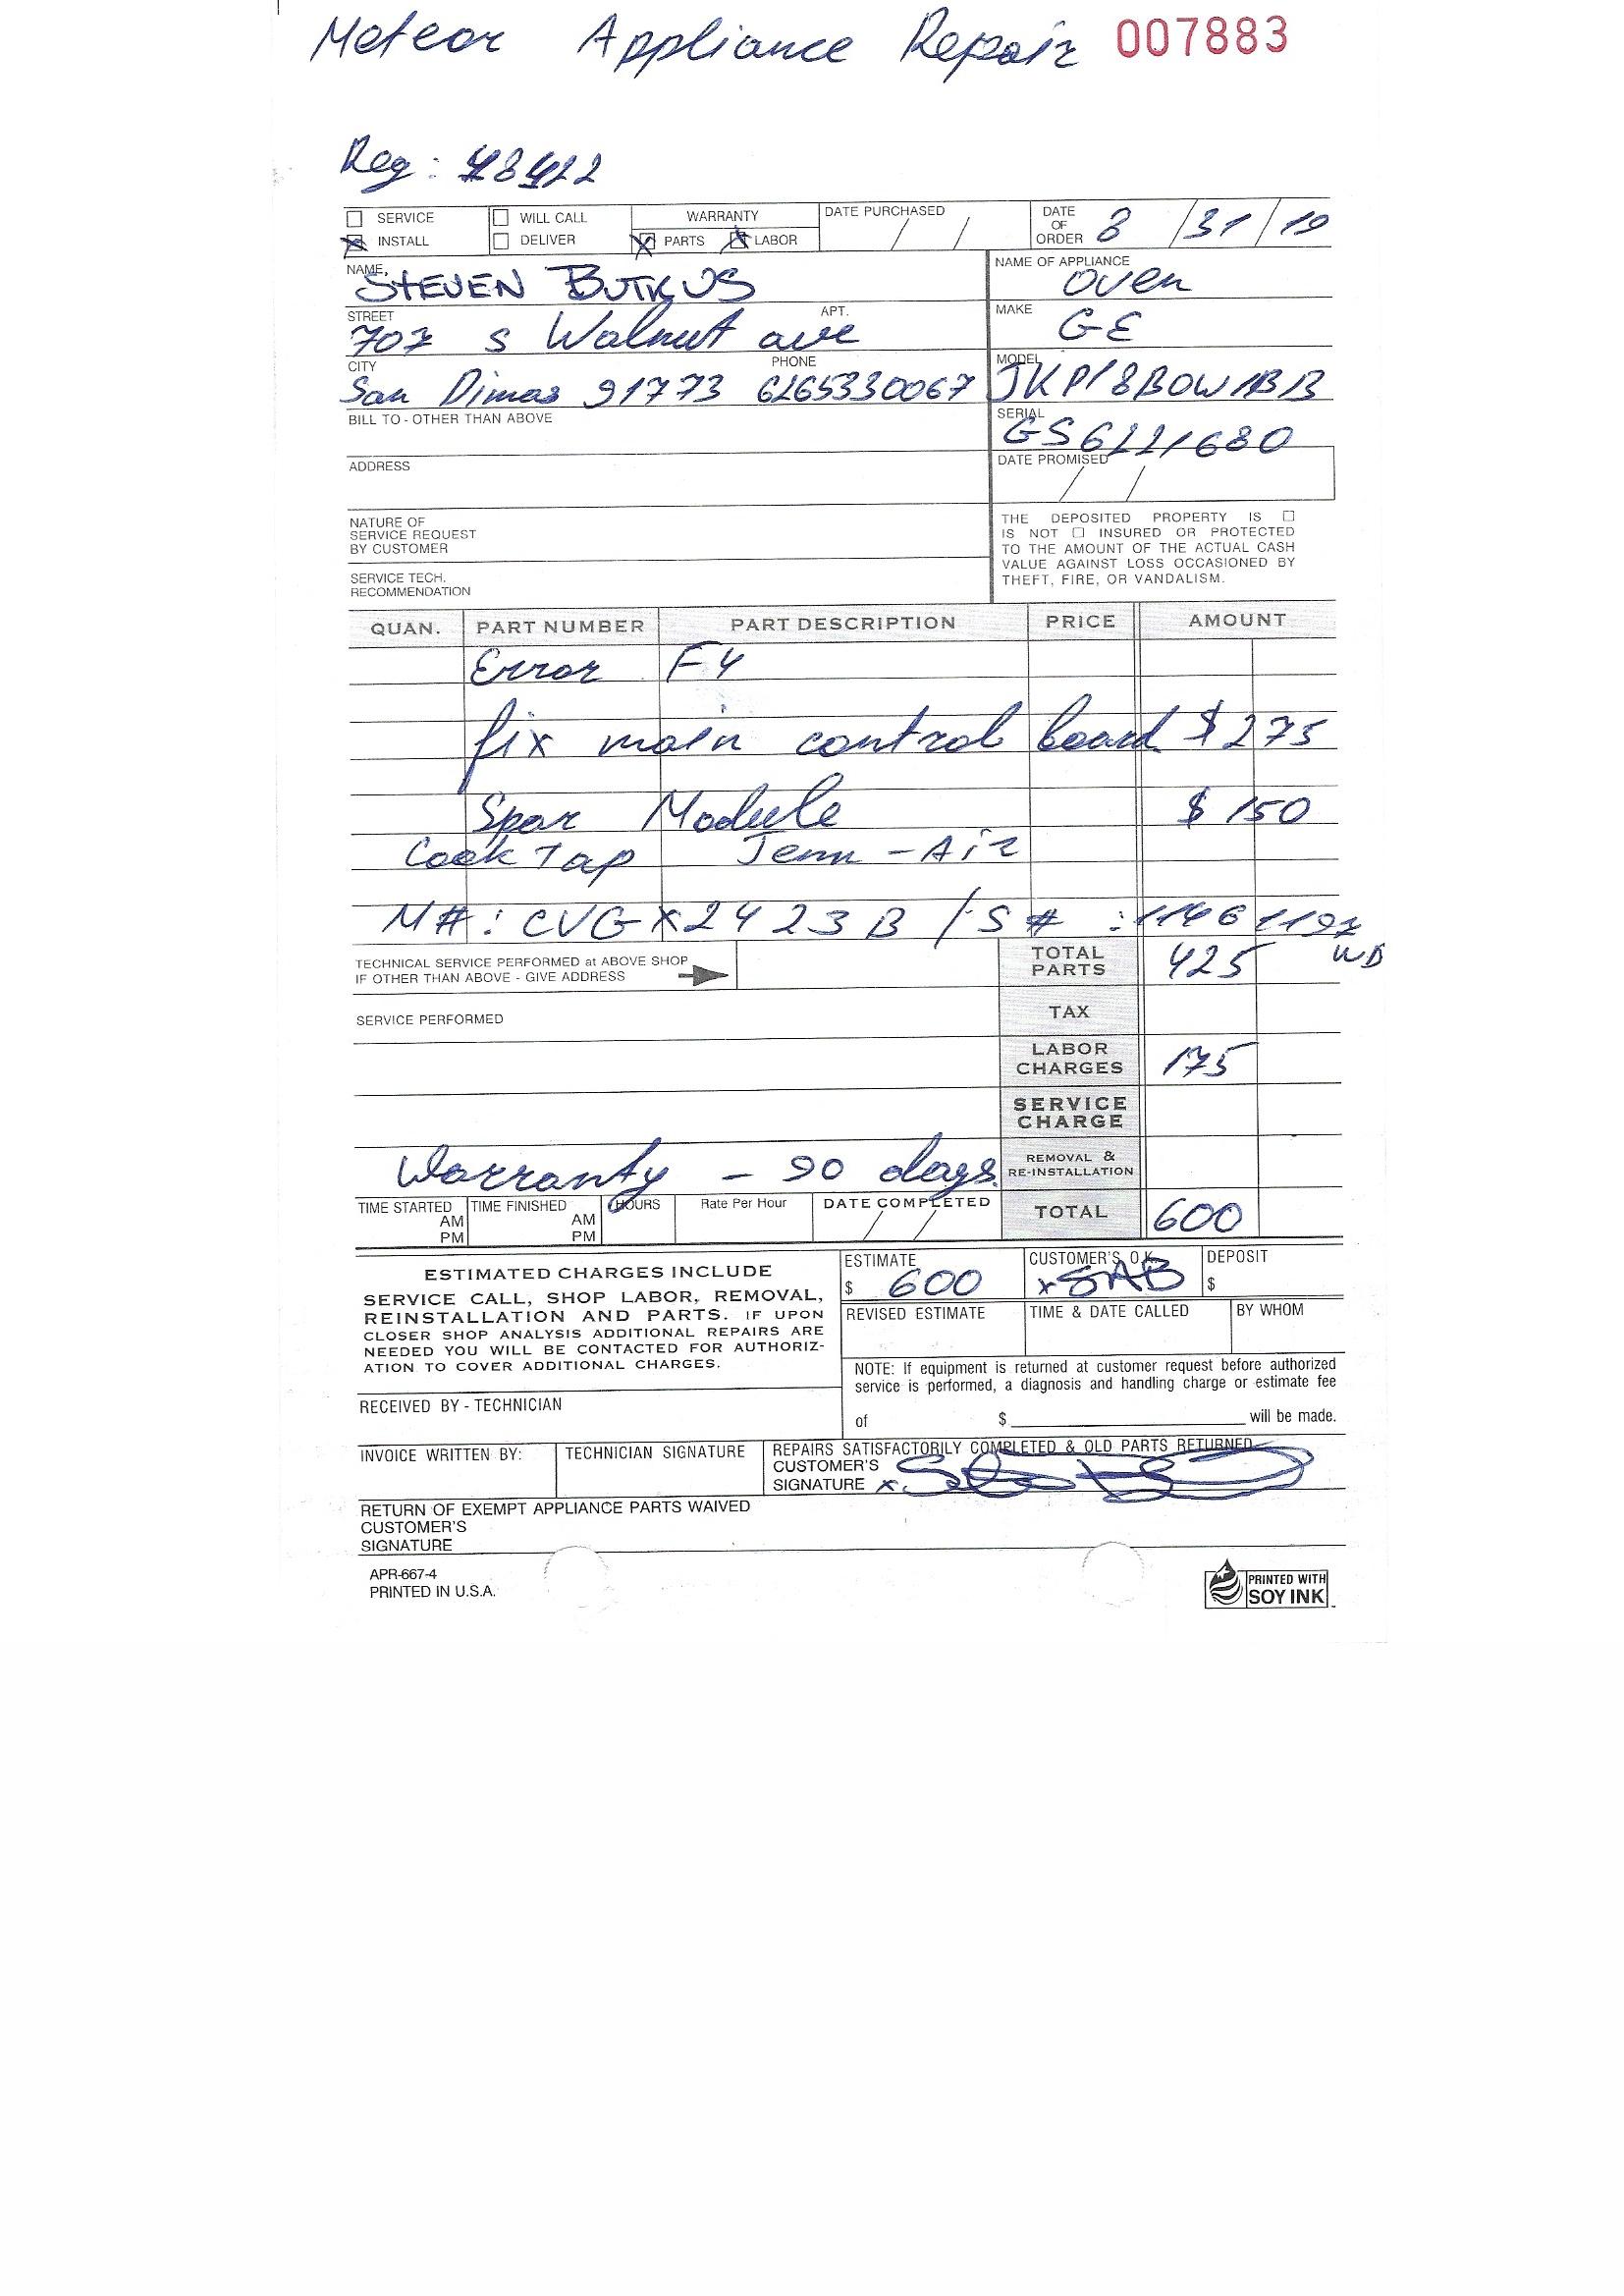 Meteor Appliance Repair 007883
Reg: 48422
SERVICE WILL CALL WARRANTY DATE PURCHASED / / DATE OF ORDER 8 / 31 / 19
INSTALL DELIVER PARTS LABOR
NAME STEVEN BUTKUS NAME OF APPLIANCE Oven
STREET 707 S Walnut ave APT. MAKE GE
CITY San Dimas 91773 PHONE 6265330067 MODEL JKP18BOW1BB
BILL TO - OTHER THAN ABOVE SERIAL GS6221680
ADDRESS DATE PROMISED / /
NATURE OF SERVICE REQUEST BY CUSTOMER
SERVICE TECH. RECOMMENDATION
THE DEPOSITED PROPERTY IS
IS NOT INSURED OR PROTECTED
TO THE AMOUNT OF THE ACTUAL CASH
VALUE AGAINST LOSS OCCASIONED BY
THEFT, FIRE, OR VANDALISM.
QUAN. PART NUMBER PART DESCRIPTION PRICE AMOUNT
Error F4
fix main control board $275
Spar Module $150
Cook Tap Jenn-Air
M#: CVGX2423B / S#: 11461197
WB
TECHNICAL SERVICE PERFORMED at ABOVE SHOP
IF OTHER THAN ABOVE - GIVE ADDRESS
TOTAL PARTS 425
TAX
SERVICE PERFORMED
LABOR CHARGES 175
SERVICE CHARGE
Warranty - 90 days
REMOVAL & RE-INSTALLATION
TIME STARTED AM PM TIME FINISHED AM PM HOURS Rate Per Hour DATE COMPLETED / / TOTAL 600
ESTIMATED CHARGES INCLUDE
SERVICE CALL, SHOP LABOR, REMOVAL,
REINSTALLATION AND PARTS. IF UPON
CLOSER SHOP ANALYSIS ADDITIONAL REPAIRS ARE
NEEDED YOU WILL BE CONTACTED FOR AUTHORIZ-
ATION TO COVER ADDITIONAL CHARGES.
ESTIMATE $ 600 CUSTOMER'S O.K. x SAB DEPOSIT $
REVISED ESTIMATE TIME & DATE CALLED BY WHOM
NOTE: If equipment is returned at customer request before authorized
service is performed, a diagnosis and handling charge or estimate fee
of $ will be made.
RECEIVED BY - TECHNICIAN
INVOICE WRITTEN BY: TECHNICIAN SIGNATURE REPAIRS SATISFACTORILY COMPLETED & OLD PARTS RETURNED
CUSTOMER'S
SIGNATURE x
RETURN OF EXEMPT APPLIANCE PARTS WAIVED
CUSTOMER'S
SIGNATURE
APR-667-4
PRINTED IN U.S.A.
PRINTED WITH
SOY INK